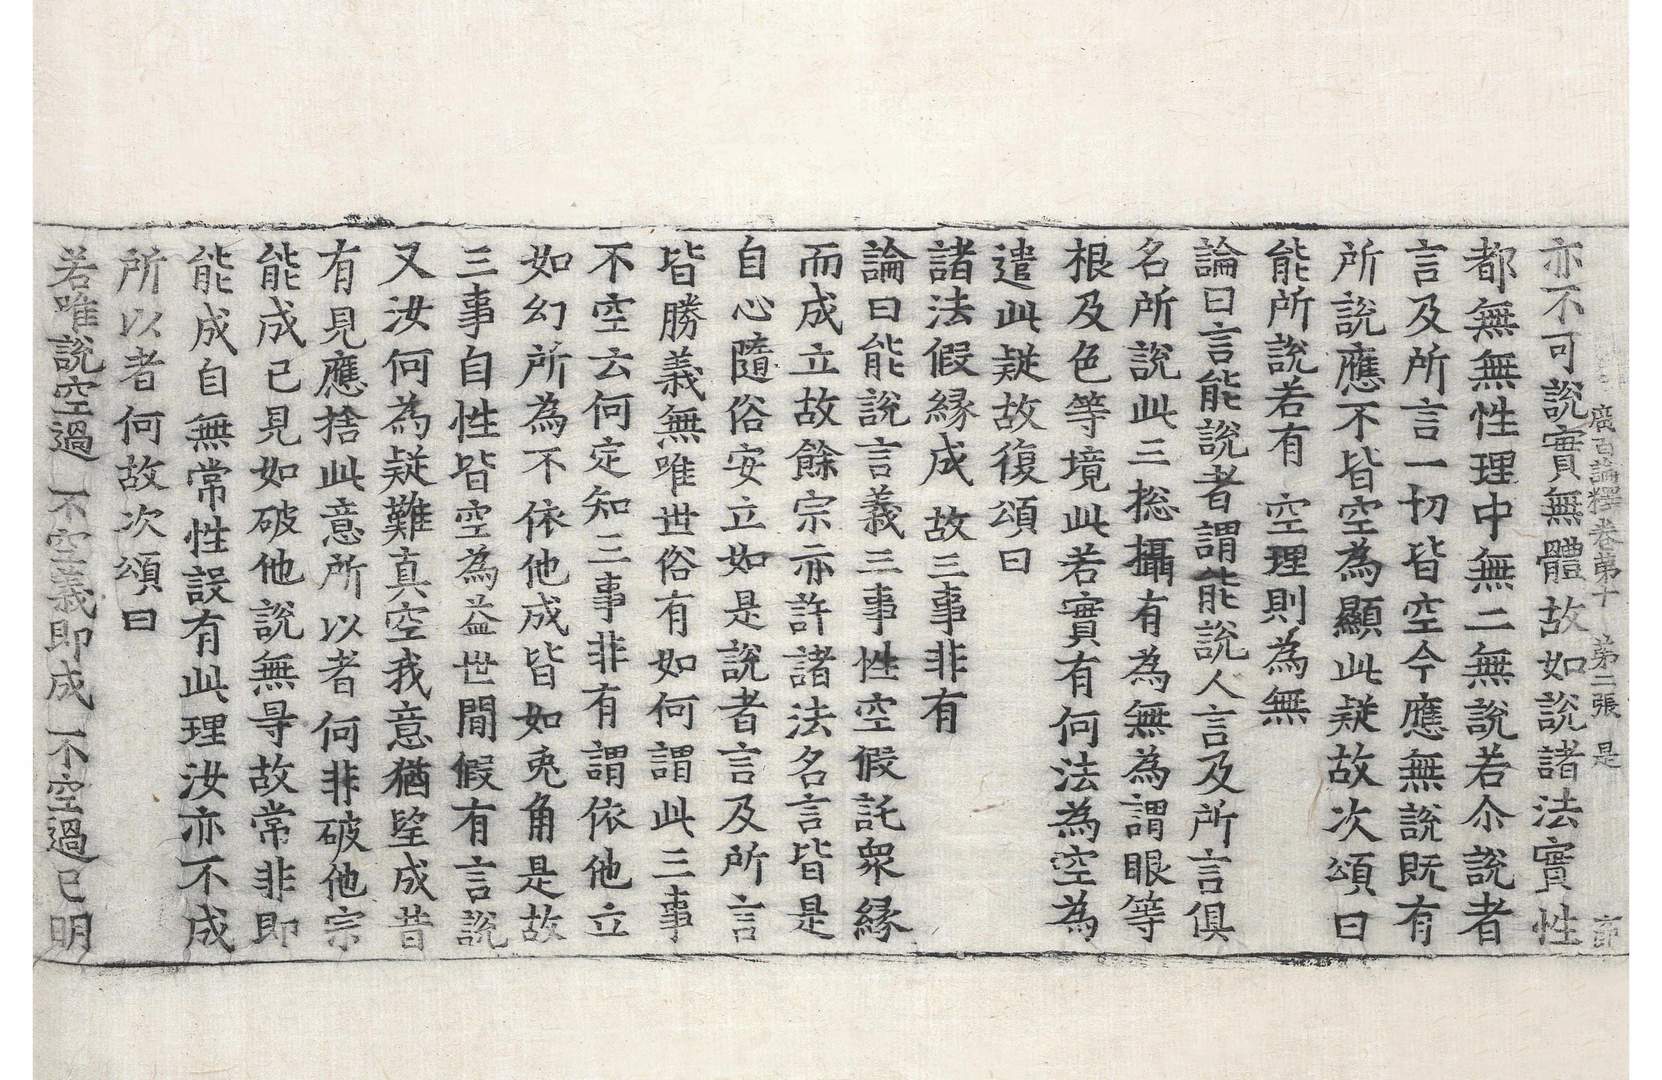 廣百論釋卷第十 第二張 是
亦不可說實無體故如說諸法實性
都無無性理中無二無說若尒說者
言及所言一切皆空今應無說既有
所說應不皆空為顯此疑故次頌曰
能所說若有 空理則為無
論曰言能說者謂能說人言及所言俱
名所說此三摠攝有為無為謂眼等
根及色等境此若實有何法為空為
遣此疑故復頌曰
諸法假緣成 故三事非有
論曰能說言義三事性空假託衆緣
而成立故餘宗亦許諸法名言皆是
自心隨俗安立如是說者言及所言
皆勝義無唯世俗有如何謂此三事
不空云何定知三事非有謂依他立
如幻所為不依他成皆如兎角是故
三事自性皆空為益世間假有言說
又汝何為疑難真空我意猶望成昔
有見應捨此意所以者何非破他宗
能成己見如破他說無㝵故常非即
能成自無常性設有此理汝亦不成
所以者何故次頌曰
若唯說空過 不空義即成 不空過已明